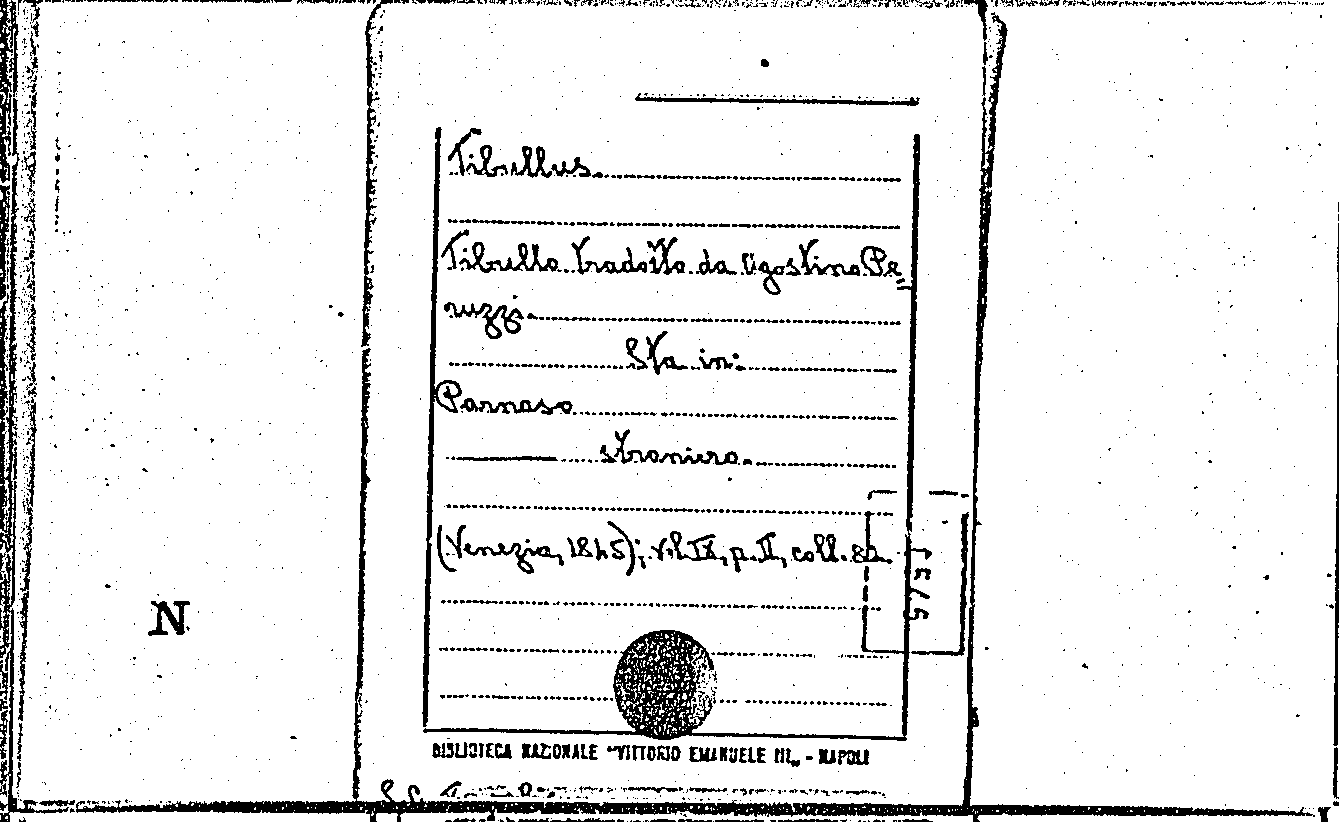 Tibullus.
Tibullo tradotto da Agostino Pe„
ruzzi.
Sta in:
Parnaso
straniero.
(Venezia, 1845); vol. IX, p. II, coll. 82.
N
BIBLIOTECA NAZIONALE "VITTORIO EMANUELE III„ - NAPOLI